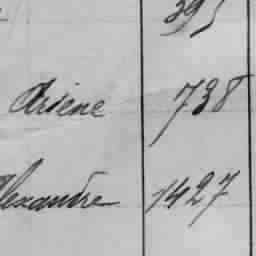 395
Arsène 738
Alexandre 1427